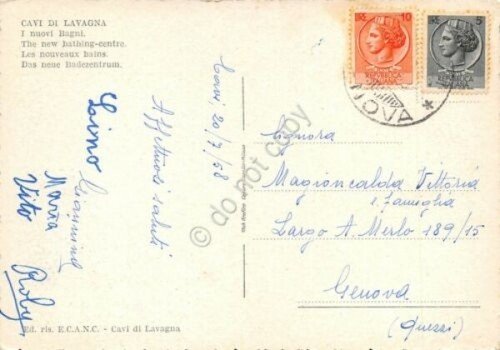 CAVI DI LAVAGNA
I nuovi Bagni.
The new bathing-centre.
Les nouveaux bains.
Das neue Badezentrum.
Cavi, 20/7/58
Affettuosi saluti
Lino
Giannina
Maria
Vito
Roby
Ed. ris. E.C.A.N.C. - Cavi di Lavagna
10
5
NOVA *
Signora
Magioncalda Vittoria
e famiglia
Largo A. Merlo 189/15
Genova
(Quezzi)
do not copy